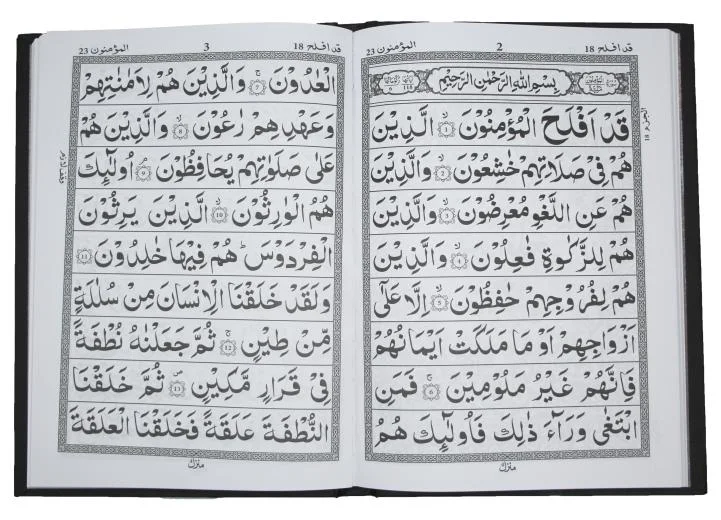 قد افلح 18
2
المؤمنون 23
بِسْمِ اللّٰهِ الرَّحْمٰنِ الرَّحِيْمِ
قَدْ اَفْلَحَ الْمُؤْمِنُوْنَ ۙ‏ 1 الَّذِيْنَ
هُمْ فِىْ صَلَاتِهِمْ خٰشِعُوْنَ ۙ 2 وَالَّذِيْنَ
هُمْ عَنِ اللَّغْوِ مُعْرِضُوْنَ ۙ 3 وَالَّذِيْنَ
هُمْ لِلزَّكٰوةِ فٰعِلُوْنَ ۙ 4 وَالَّذِيْنَ
هُمْ لِفُرُوْجِهِمْ حٰفِظُوْنَ ۙ 5 اِلَّا عَلٰٓى
اَزْوَاجِهِمْ اَوْ مَا مَلَكَتْ اَيْمَانُهُمْ
فَاِنَّهُمْ غَيْرُ مَلُوْمِيْنَ ۚ 6 فَمَنِ
ابْتَغٰى وَرَآءَ ذٰلِكَ فَاُولٰٓئِكَ هُمُ
منزل
الجزء 18
قد افلح 18
3
المؤمنون 23
الْعٰدُوْنَ ۚ 7 وَالَّذِيْنَ هُمْ لِاَمٰنٰتِهِمْ
وَعَهْدِهِمْ رٰعُوْنَ ۙ 8 وَالَّذِيْنَ هُمْ
عَلٰى صَلَوٰتِهِمْ يُحَافِظُوْنَ ۘ 9 اُولٰٓئِكَ
هُمُ الْوٰرِثُوْنَ ۙ 10 الَّذِيْنَ يَرِثُوْنَ
الْفِرْدَوْسَ ؕ هُمْ فِيْهَا خٰلِدُوْنَ 11
وَلَقَدْ خَلَقْنَا الْاِنْسَانَ مِنْ سُلٰلَةٍ
مِّنْ طِيْنٍ ۚ 12 ثُمَّ جَعَلْنٰهُ نُطْفَةً
فِىْ قَرَارٍ مَّكِيْنٍ ۖ 13 ثُمَّ خَلَقْنَا
النُّطْفَةَ عَلَقَةً فَخَلَقْنَا الْعَلَقَةَ
منزل